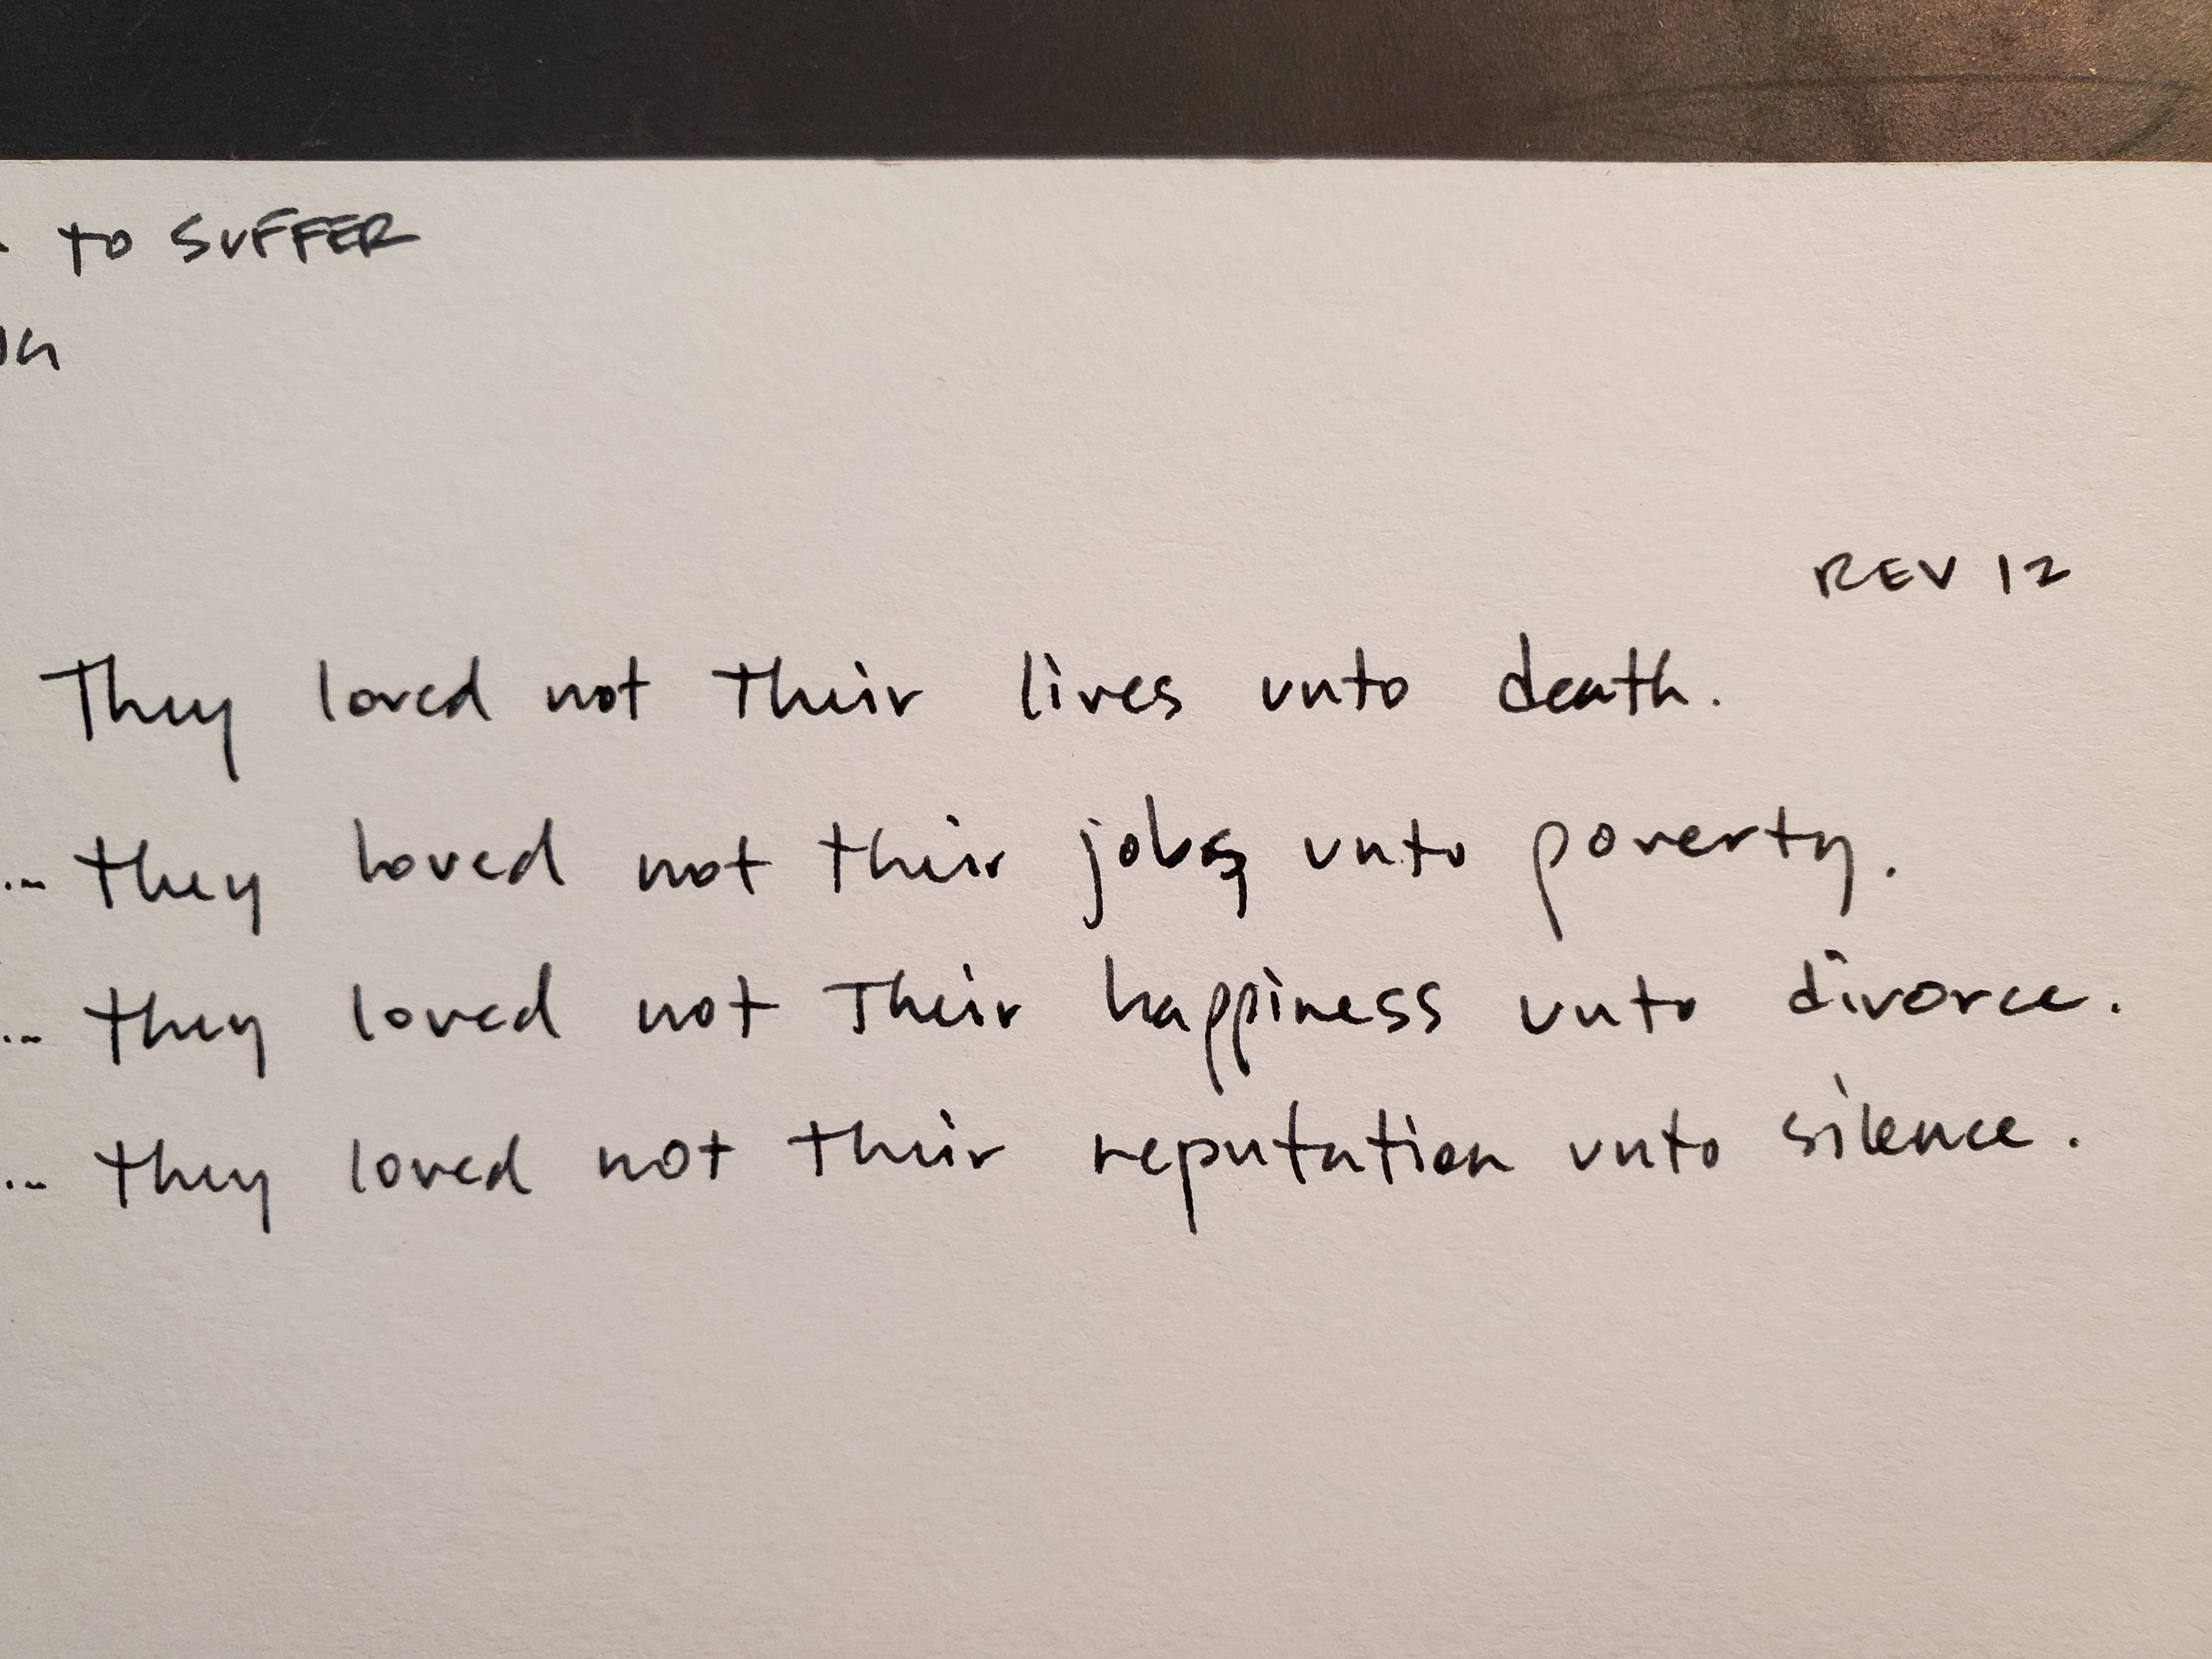 to SUFFER
REV 12
They loved not their lives unto death.
... they loved not their jobs unto poverty.
... they loved not their happiness unto divorce.
... they loved not their reputation unto silence.